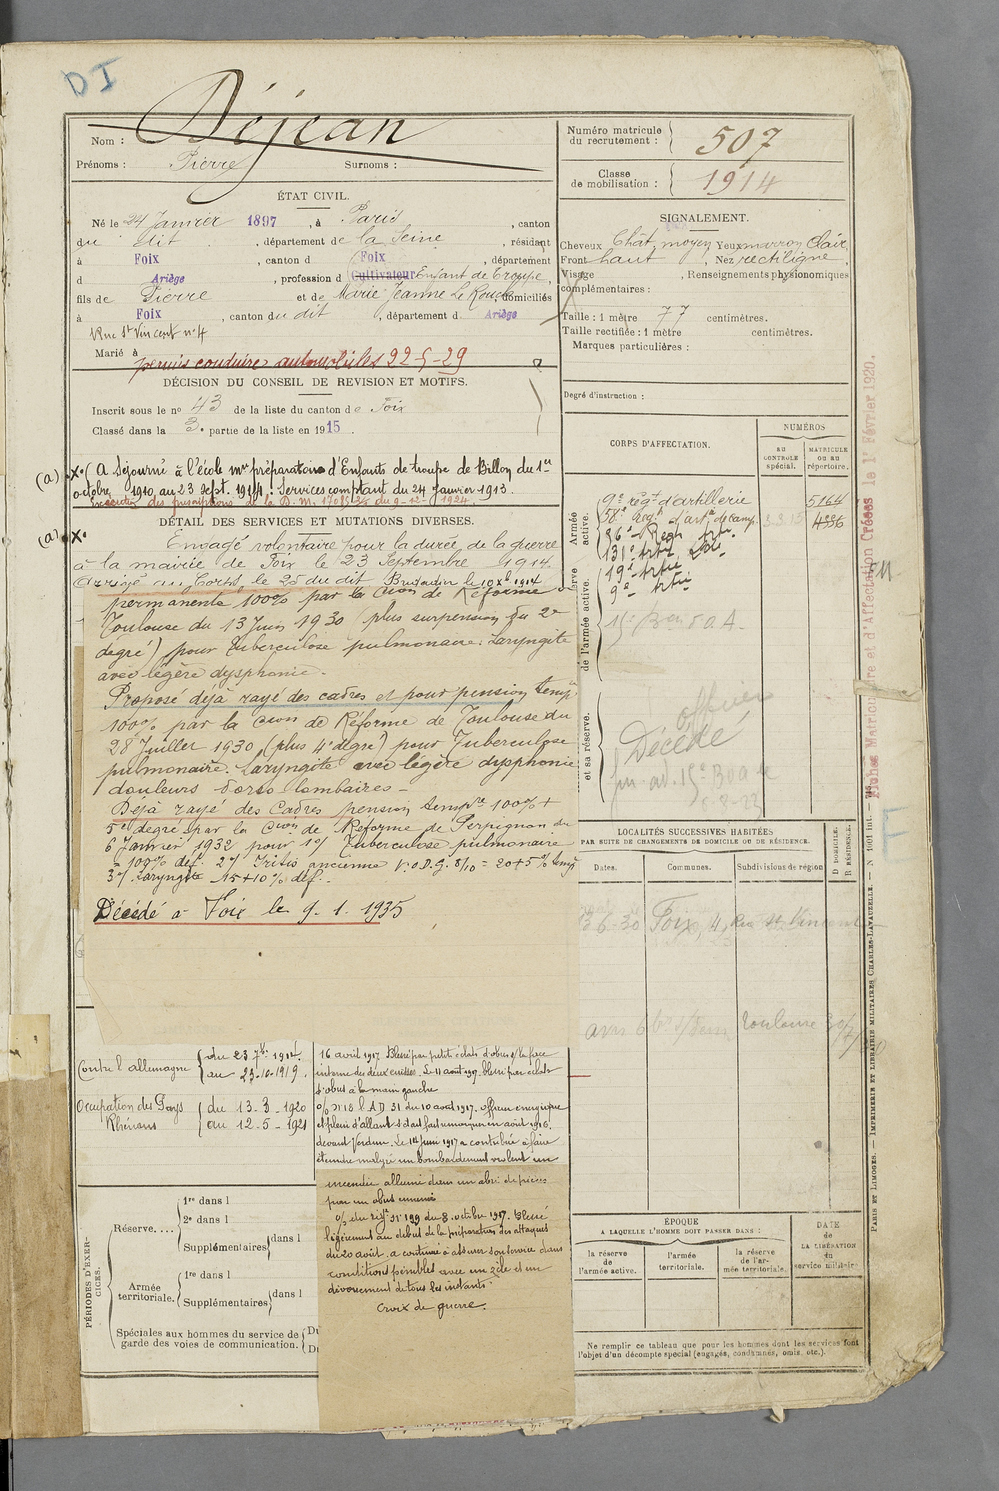 DI
Nom : Déjean
Prénoms : Pierre Surnoms :
Numéro matricule du recrutement : 507
Classe de mobilisation : 1914
ÉTAT CIVIL.
Né le 24 Janvier 1897, à Paris, canton
du dit, département de la Seine, résidant
à Foix, canton d Foix, département
d Ariège, profession d Cultivateur Enfant de Troupe,
fils de Pierre et de Marie Jeanne Le Rouch, domiciliés
à Foix, canton du dit, département d Ariège
Rue St Vincent n° 4
Marié à
permis conduire automobiles 22-5-29
SIGNALEMENT.
Cheveux Chât. moyen Yeux marron clair,
Front haut, Nez rectiligne,
Visage , Renseignements physionomiques
complémentaires :
Taille : 1 mètre 77 centimètres.
Taille rectifiée : 1 mètre centimètres.
Marques particulières :
Degré d'instruction :
DÉCISION DU CONSEIL DE REVISION ET MOTIFS.
Inscrit sous le n° 43 de la liste du canton de Foix
Classé dans la 3e partie de la liste en 1915.
(a) x (A séjourné à l'école mre préparatoire d'Enfants de troupe de Billom du 1er
octobre 1910 au 23 sept. 1914. Services comptant du 24 Janvier 1913.
DÉTAIL DES SERVICES ET MUTATIONS DIVERSES.
(a) x
Engagé volontaire pour la durée de la guerre
à la mairie de Foix le 23 Septembre 1914.
Arrivé au Corps le 25 du dit Brigadier le 10 Xb 1914
permanente 100% par la Cion de Réforme
Toulouse du 13 Juin 1930 (plus surpension du 2e
degré) pour tuberculose pulmonaire. Laryngite
avec légère dysphonie.
Proposé déjà rayé des cadres et pour pension temp
100% par la Cion de Réforme de Toulouse du
28 Juillet 1930 (plus 4e degré) pour Tuberculose
pulmonaire. Laryngite avec légère dysphonie
douleurs dorso lombaires -
Déjà rayé des Cadres pension tempre 100% +
5e degré par la Cion de Réforme de Perpignan du
6 Janvier 1932 pour 1°/ Tuberculose pulmonaire
100% def. 2°/ Iritis ancienne V.O.D.G. 8/10 = 20+5% temp
3°/ Laryngite 15+10% def.
Décédé à Foix le 9.1.1935
CORPS D'AFFECTATION.
NUMÉROS
AU CONTROLE spécial.
MATRICULE OU AU répertoire.
Armée active.
9e régt d'artillerie 5164
58e Régt d'art. de camp. 4336
131e
19e artie
9e artie
de l'armée active.
et sa réserve.
officier
Décédé
Fiches Matriculaire et d'Affectation Créées le 1er Février 1920.
LOCALITÉS SUCCESSIVES HABITÉES
PAR SUITE DE CHANGEMENTS DE DOMICILE OU DE RÉSIDENCE.
Dates. Communes. Subdivisions de région
D DOMICILE.
R RÉSIDENCE.
6-30 Foix, 4, Rue St Vincent
Toulouse
Contre l'allemagne du 23 7bre 1914.
au 23-10-1919.
Occupation des Pays Rhénans du 13-3-1920
au 12-5-1921
16 avril 1917 Blessé par petit éclats d'obus s/ la face
interne des deux cuisses. Le 11 août 1917 blessé par éclats
d'obus à la main gauche
o/ n° 18 l A D 31 du 10 aout 1917. officier energique
et plein d'allant s'était fait remarquer en août 1916
devant Verdun. Le 1er Juin 1917 a contribué à faire
éteindre malgré un bombardement violent un
incendie allumé dans un abri de pièces
par un obus ennemi
o/ du régt n° 199 du 8 octobre 1917. Blessé
légèrement au début de la préparation des attaques
du 20 août. a continué à assurer son service dans
conditions pénibles avec un zèle et un
dévouement de tous les instants.
Croix de guerre.
PÉRIODES D'EXERCICES.
Réserve....
1re dans l
2e dans l
Supplémentaires dans l
Armée territoriale.
1re dans l
Supplémentaires dans l
Spéciales aux hommes du service de
garde des voies de communication.
Du
Du
ÉPOQUE
A LAQUELLE L'HOMME DOIT PASSER DANS :
la réserve de l'armée active.
l'armée territoriale.
la réserve de l'armée territoriale.
DATE de LA LIBÉRATION du service militaire
Ne remplir ce tableau que pour les hommes dont les services font
l'objet d'un décompte spécial (engagés, condamnés, omis, etc.).
PARIS ET LIMOGES. — IMPRIMERIE ET LIBRAIRIE MILITAIRES CHARLES-LAVAUZELLE. — N° 1601 int.